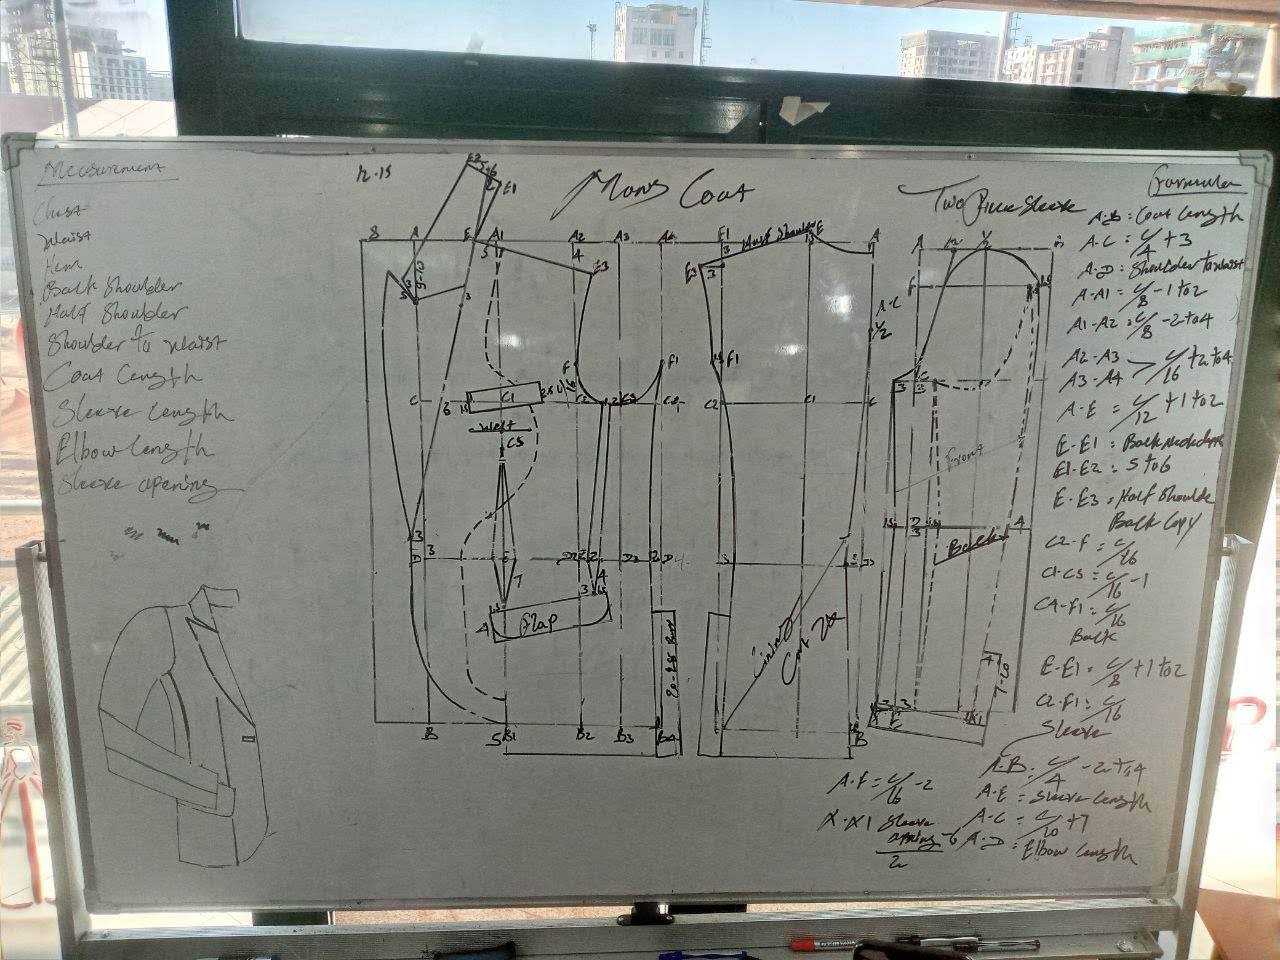 Measurement
Chest
Waist
Hem
Back Shoulder
Half Shoulder
Shoulder to waist
Coat length
Sleeve length
Elbow length
Sleeve opening
12.15
Mans Coat
Two Piece Sleeve
Formula
A-B = Coat length
A-C = C/4 + 3
A-D = Shoulder to waist
A-A1 = C/8 - 1 to 2
A1-A2 = C/8 - 2 to 4
A2-A3
A3-A4 > C/16 + 2 to 4
A-E = C/12 + 1 to 2
E-E1 = Back neckdine
E1-E2 = 5 to 6
E-E3 = Half Shoulde
Back Copy
C2-F = C/16
C1-C5 = C/16 - 1
C4-F1 = C/16
Back
E-E1 = C/8 + 1 to 2
C2-F1 = C/16
Sleeve
A-B = C/4 - 2 to 4
A-E = Sleeve length
A-C = C/10 + 7
A-D = Elbow length
A-F = C/16 - 2
X-X1 Sleeve
opening - 6
2
S A E A1 A2 A3 A4
E1
E3
F
F1
C
6
C1
C2
C3
West
C5
A 3
D2
D3
D
7
4
Flap
20-25
B
5 B1
B2
B3
B4
E1
Half Shoulder
E
A
E3
3
F1
A-C
1/2
C2
C1
C
3
D
Lining
B
A
1/2
F
3
Front
Back
4
7-20
X1